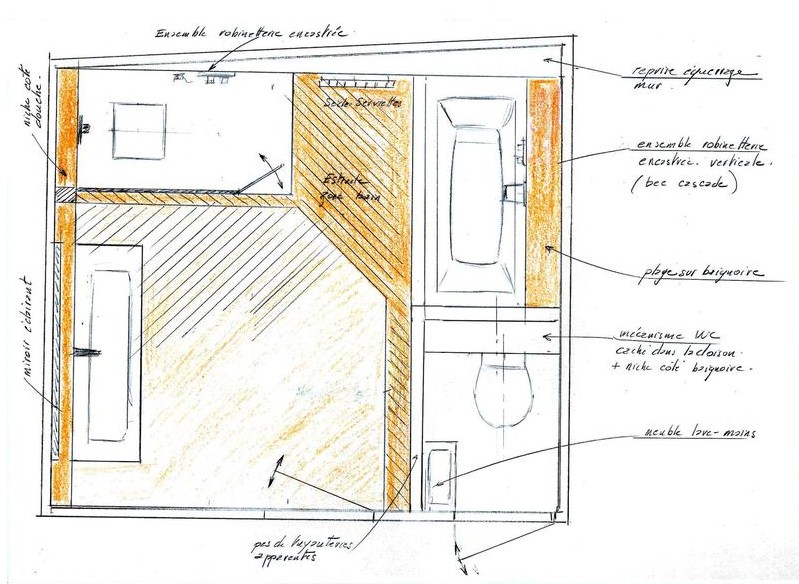 Ensemble robinetterie encastrée
niche coté
douche.
Sèche-Serviettes
Estrade
zone bain
reprise équerrage
mur.
ensemble robinetterie
encastrée verticale.
(bec cascade)
plage sur baignoire
miroir éclairant
mécanisme WC
caché dans la cloison.
+ niche côté baignoire.
meuble lave-mains
pas de tuyauteries
apparentes